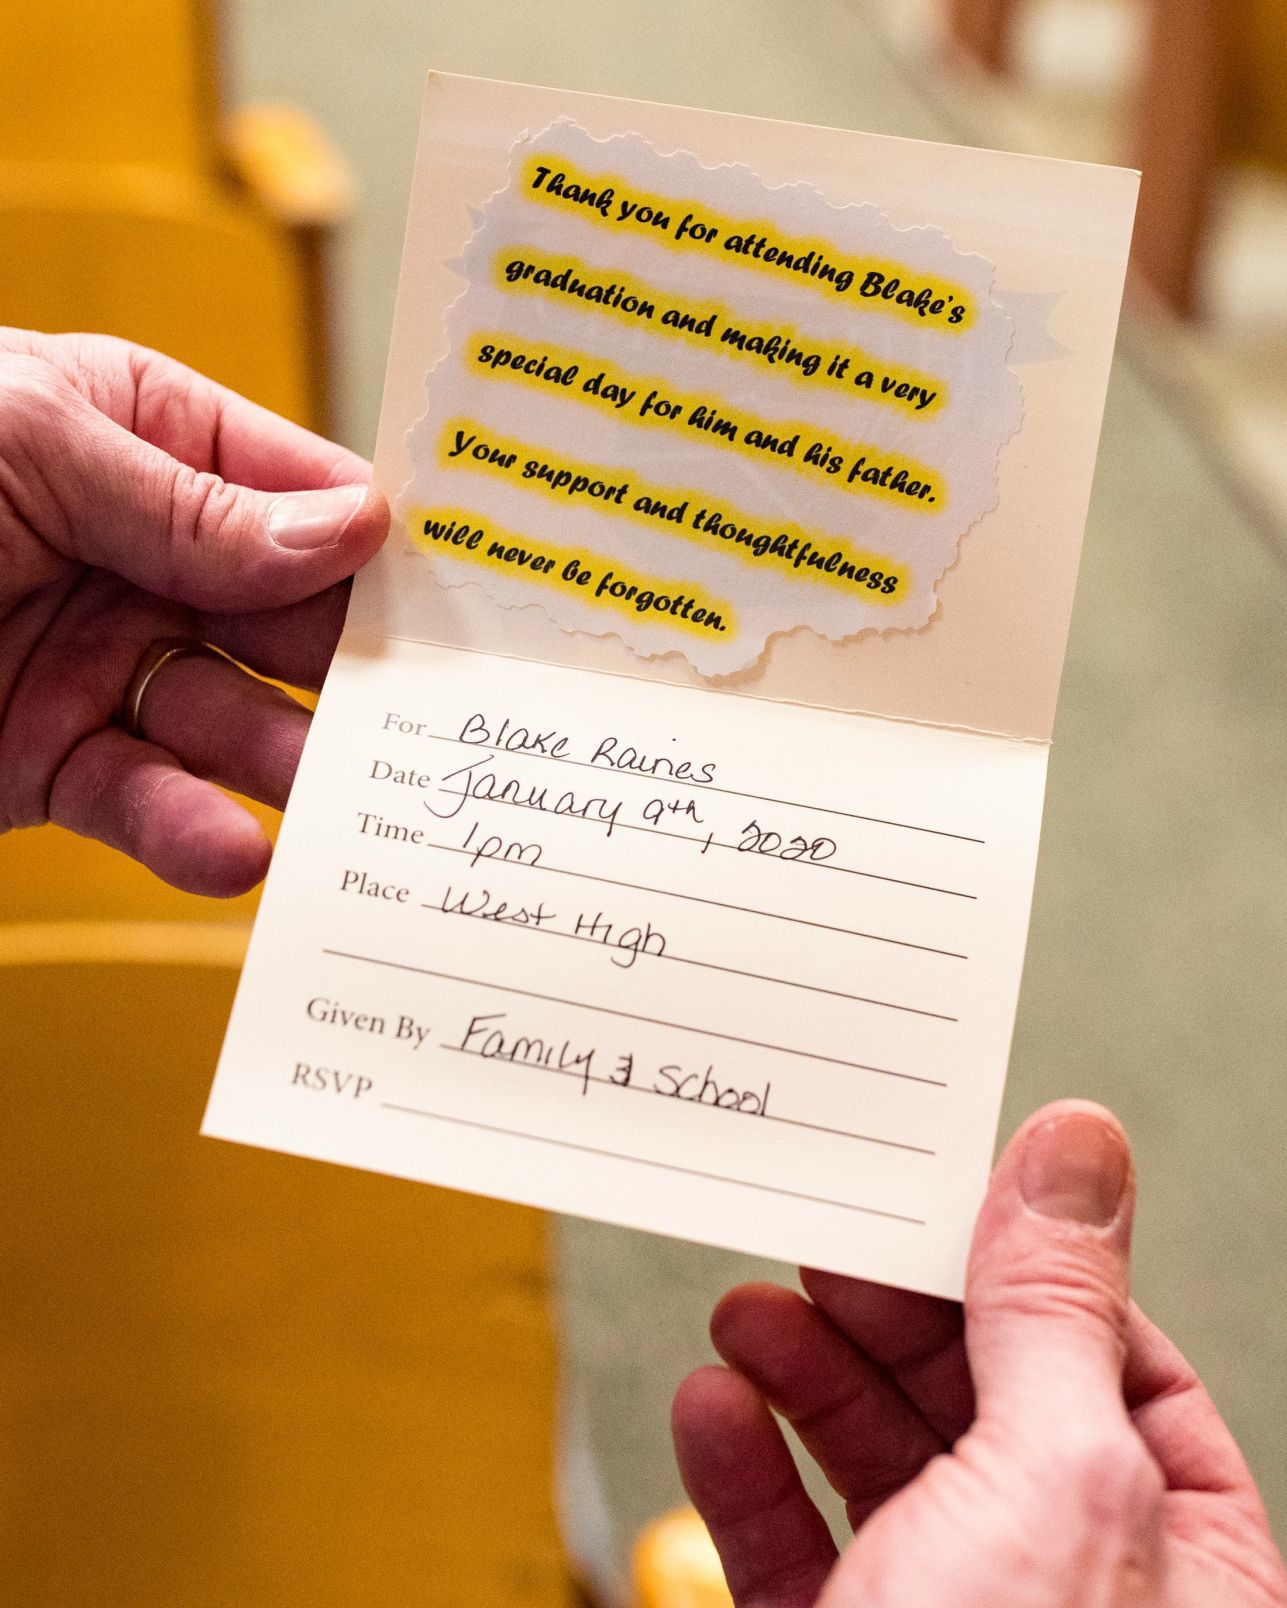 Thank you for attending Blake's
graduation and making it a very
special day for him and his father.
Your support and thoughtfulness
will never be forgotten.
For Blake Raines
Date January 9th, 2020
Time 1pm
Place West High
Given By Family & School
RSVP